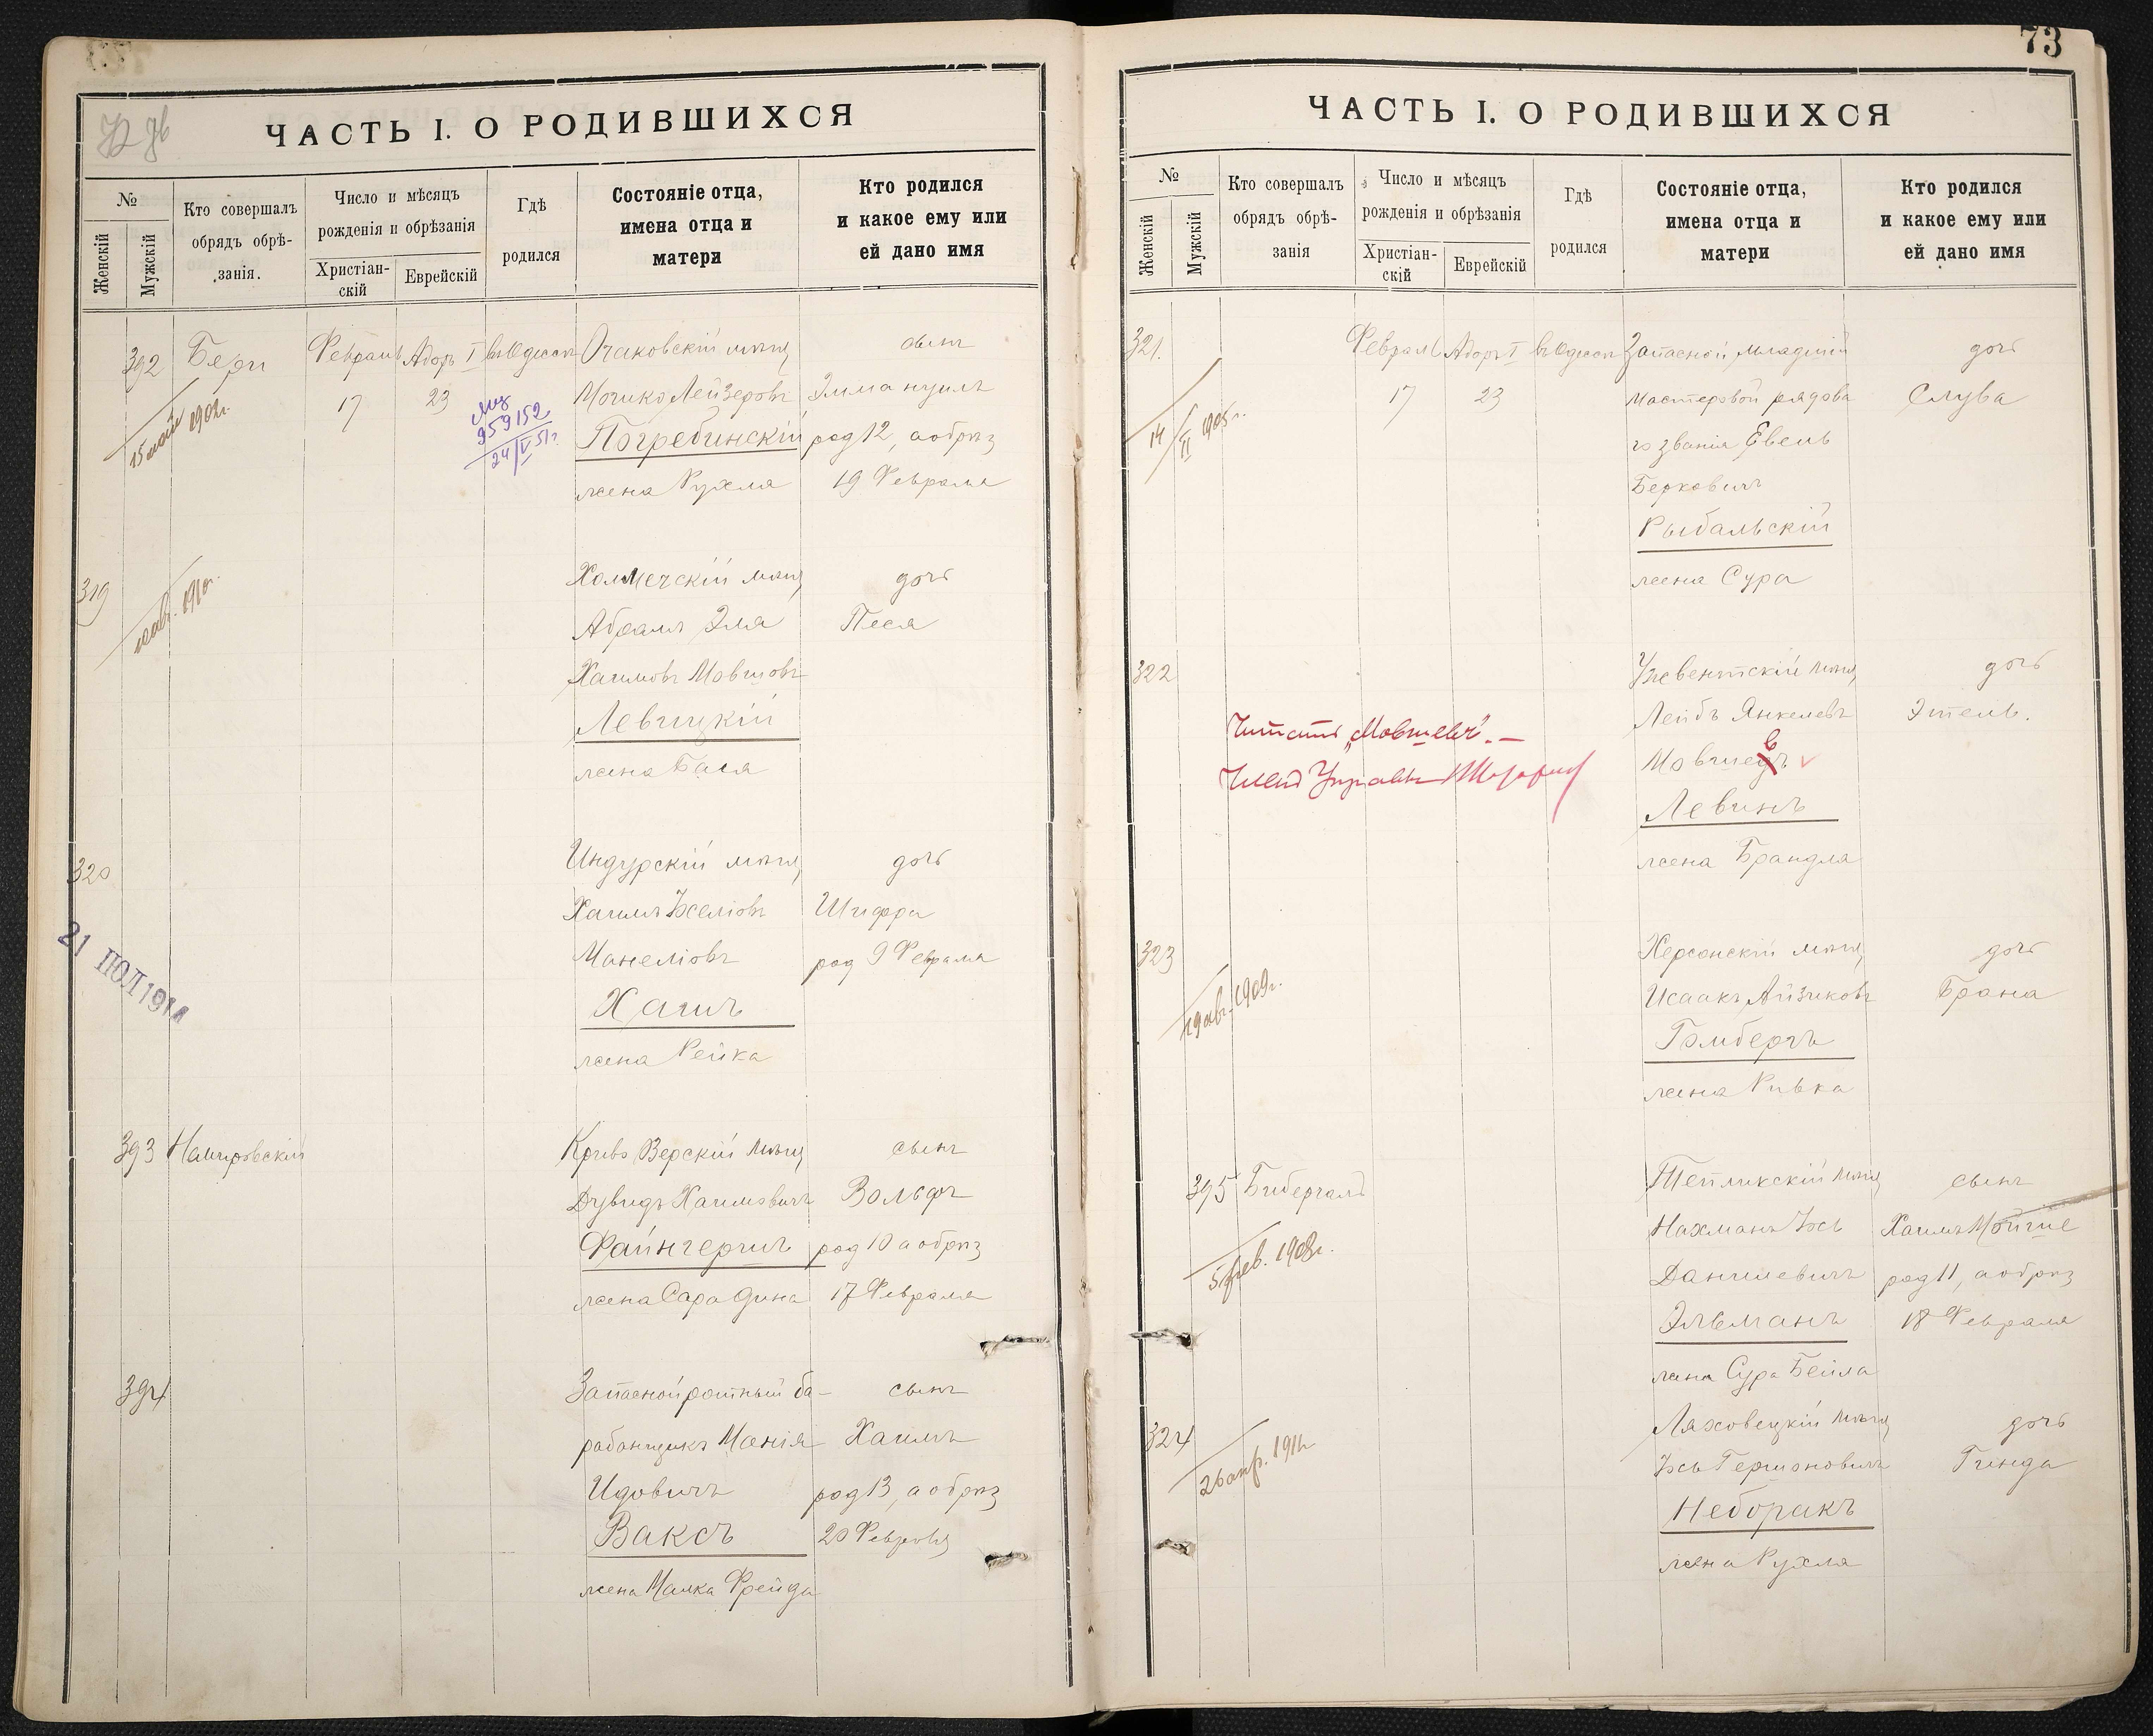 ЧАСТЬ I. О РОДИВШИХСЯ
№
Женскій
Мужскій
Кто совершалъ
обрядъ обрѣ-
занія.
Число и мѣсяцъ
рожденія и обрѣзанія
Христіан-
скій
Еврейскій
Гдѣ
родился
Состояніе отца,
имена отца и
матери
Кто родился
и какое ему или
ей дано имя
392
15 мая 1902г.
Февраль
17
Адоръ I
23
въ Одессѣ
959152
24/V 51г.
Очаковскій мѣщ
Лейзеровъ
Погребинскій
жена Рухля
сынъ
Эммануилъ
род 12, а обрѣз
19 Февраля
319
1910г.
Холмечскій мѣщ
Абрамъ Эля
Хаимовъ Мовшовъ
Левицкій
жена Бася
дочь
Песя
320
21 ПОЛ 1914
Индурскій мѣщ
Хаимъ
Манеліовъ
Хаитъ
жена Рейка
дочь
Шифра
род 9 Февраля
393
Немировскій
Криво Верскій мѣщ
Дувидъ Хаимовичъ
Файнгершъ
жена Сара Дина
сынъ
Вольфъ
род 10 а обрѣз
17 Февраля
394
Запасной ротный ба-
рабанщикъ
Идовичъ
Ваксъ
жена Малка Фрейда
сынъ
Хаимъ
род 13, а обрѣз
20 Февраля
73
ЧАСТЬ I. О РОДИВШИХСЯ
№
Женскій
Мужскій
Кто совершалъ
обрядъ обрѣ-
занія
Число и мѣсяцъ
рожденія и обрѣзанія
Христіан-
скій
Еврейскій
Гдѣ
родился
Состояніе отца,
имена отца и
матери
Кто родился
и какое ему или
ей дано имя
321.
14/II 1905г.
Феврал
17
Адоръ I
23
въ Одессѣ
Запасной младшій
мастеровой рядова
го званія Евель
Берковичъ
Рыбальскій
жена Сура
дочь
Слува
322
Читать „Мовшевъ". —
Членъ Управы
Ужвентскій мѣщ
Лейбъ Янкелевъ
Мовшевъ
Левинъ
жена Брандля
дочь
Этель.
323
19 авг. 1909г.
Херсонскій мѣщ
Исаакъ Айзиковъ
Гомбергъ
жена Ривка
дочь
Брана
395
Бибергалъ
5 фев. 1908г.
Тепликскій мѣщ
Нахманъ Іось
Данилевичъ
Эльманъ
жена Сура Бейла
сынъ
Хаимъ Мойше
род 11, а обрѣз
18 Февраля
324
26 апр. 191
Ляховецкій мѣщ
Іось Гершоновичъ
Неборакъ
жена Рухля
дочь
Гинда